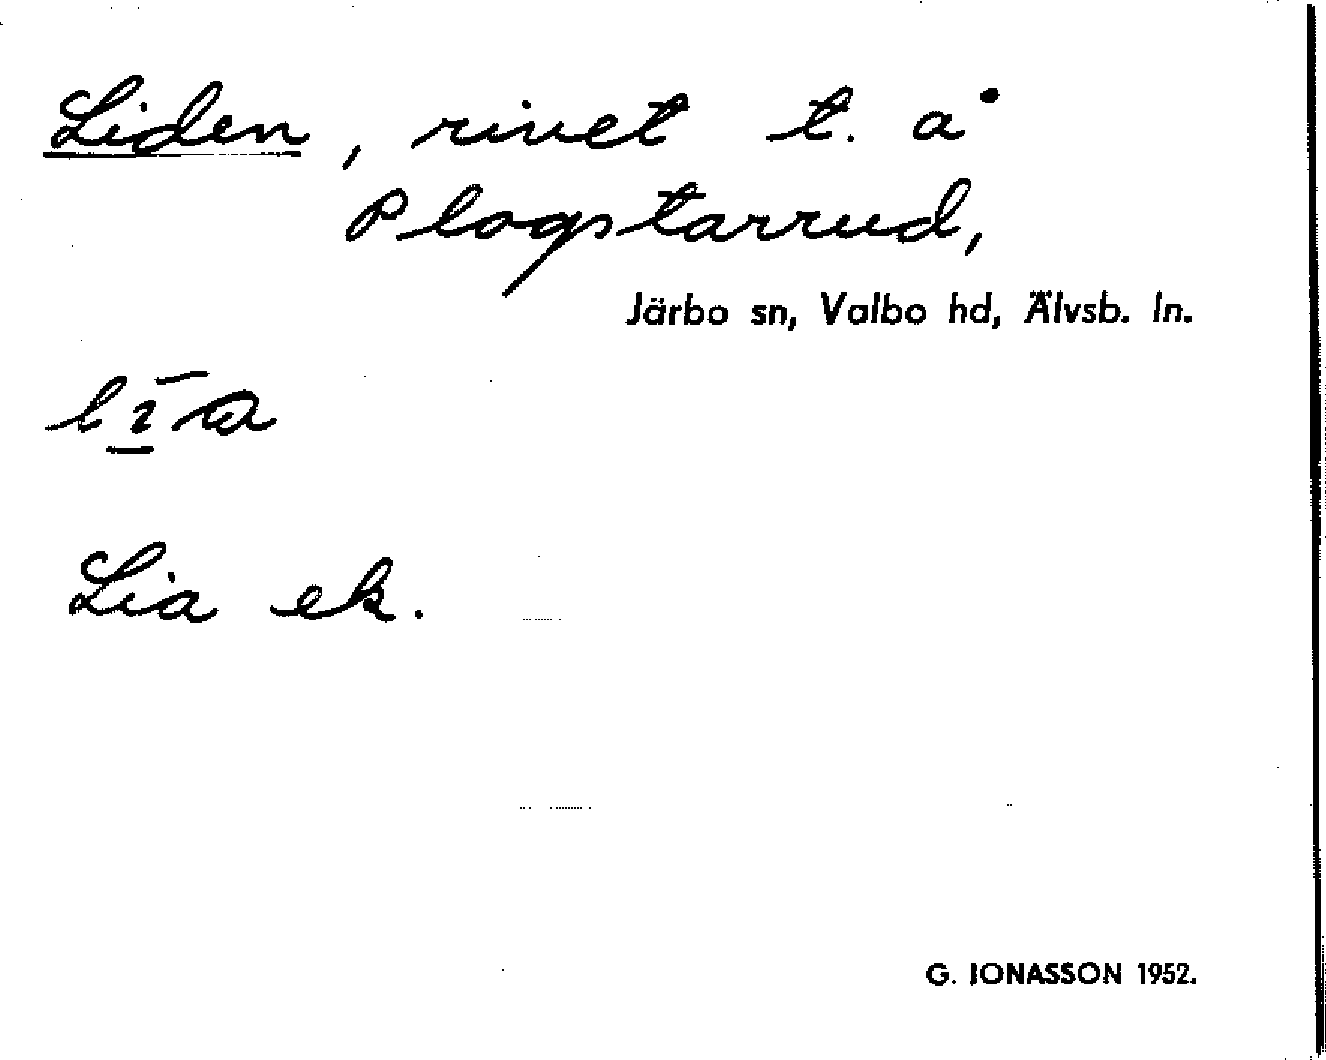 Liden, rivet t. å
Plogstarrud,
Järbo sn, Valbo hd, Älvsb. ln.
Lia ek.
G. JONASSON 1952.